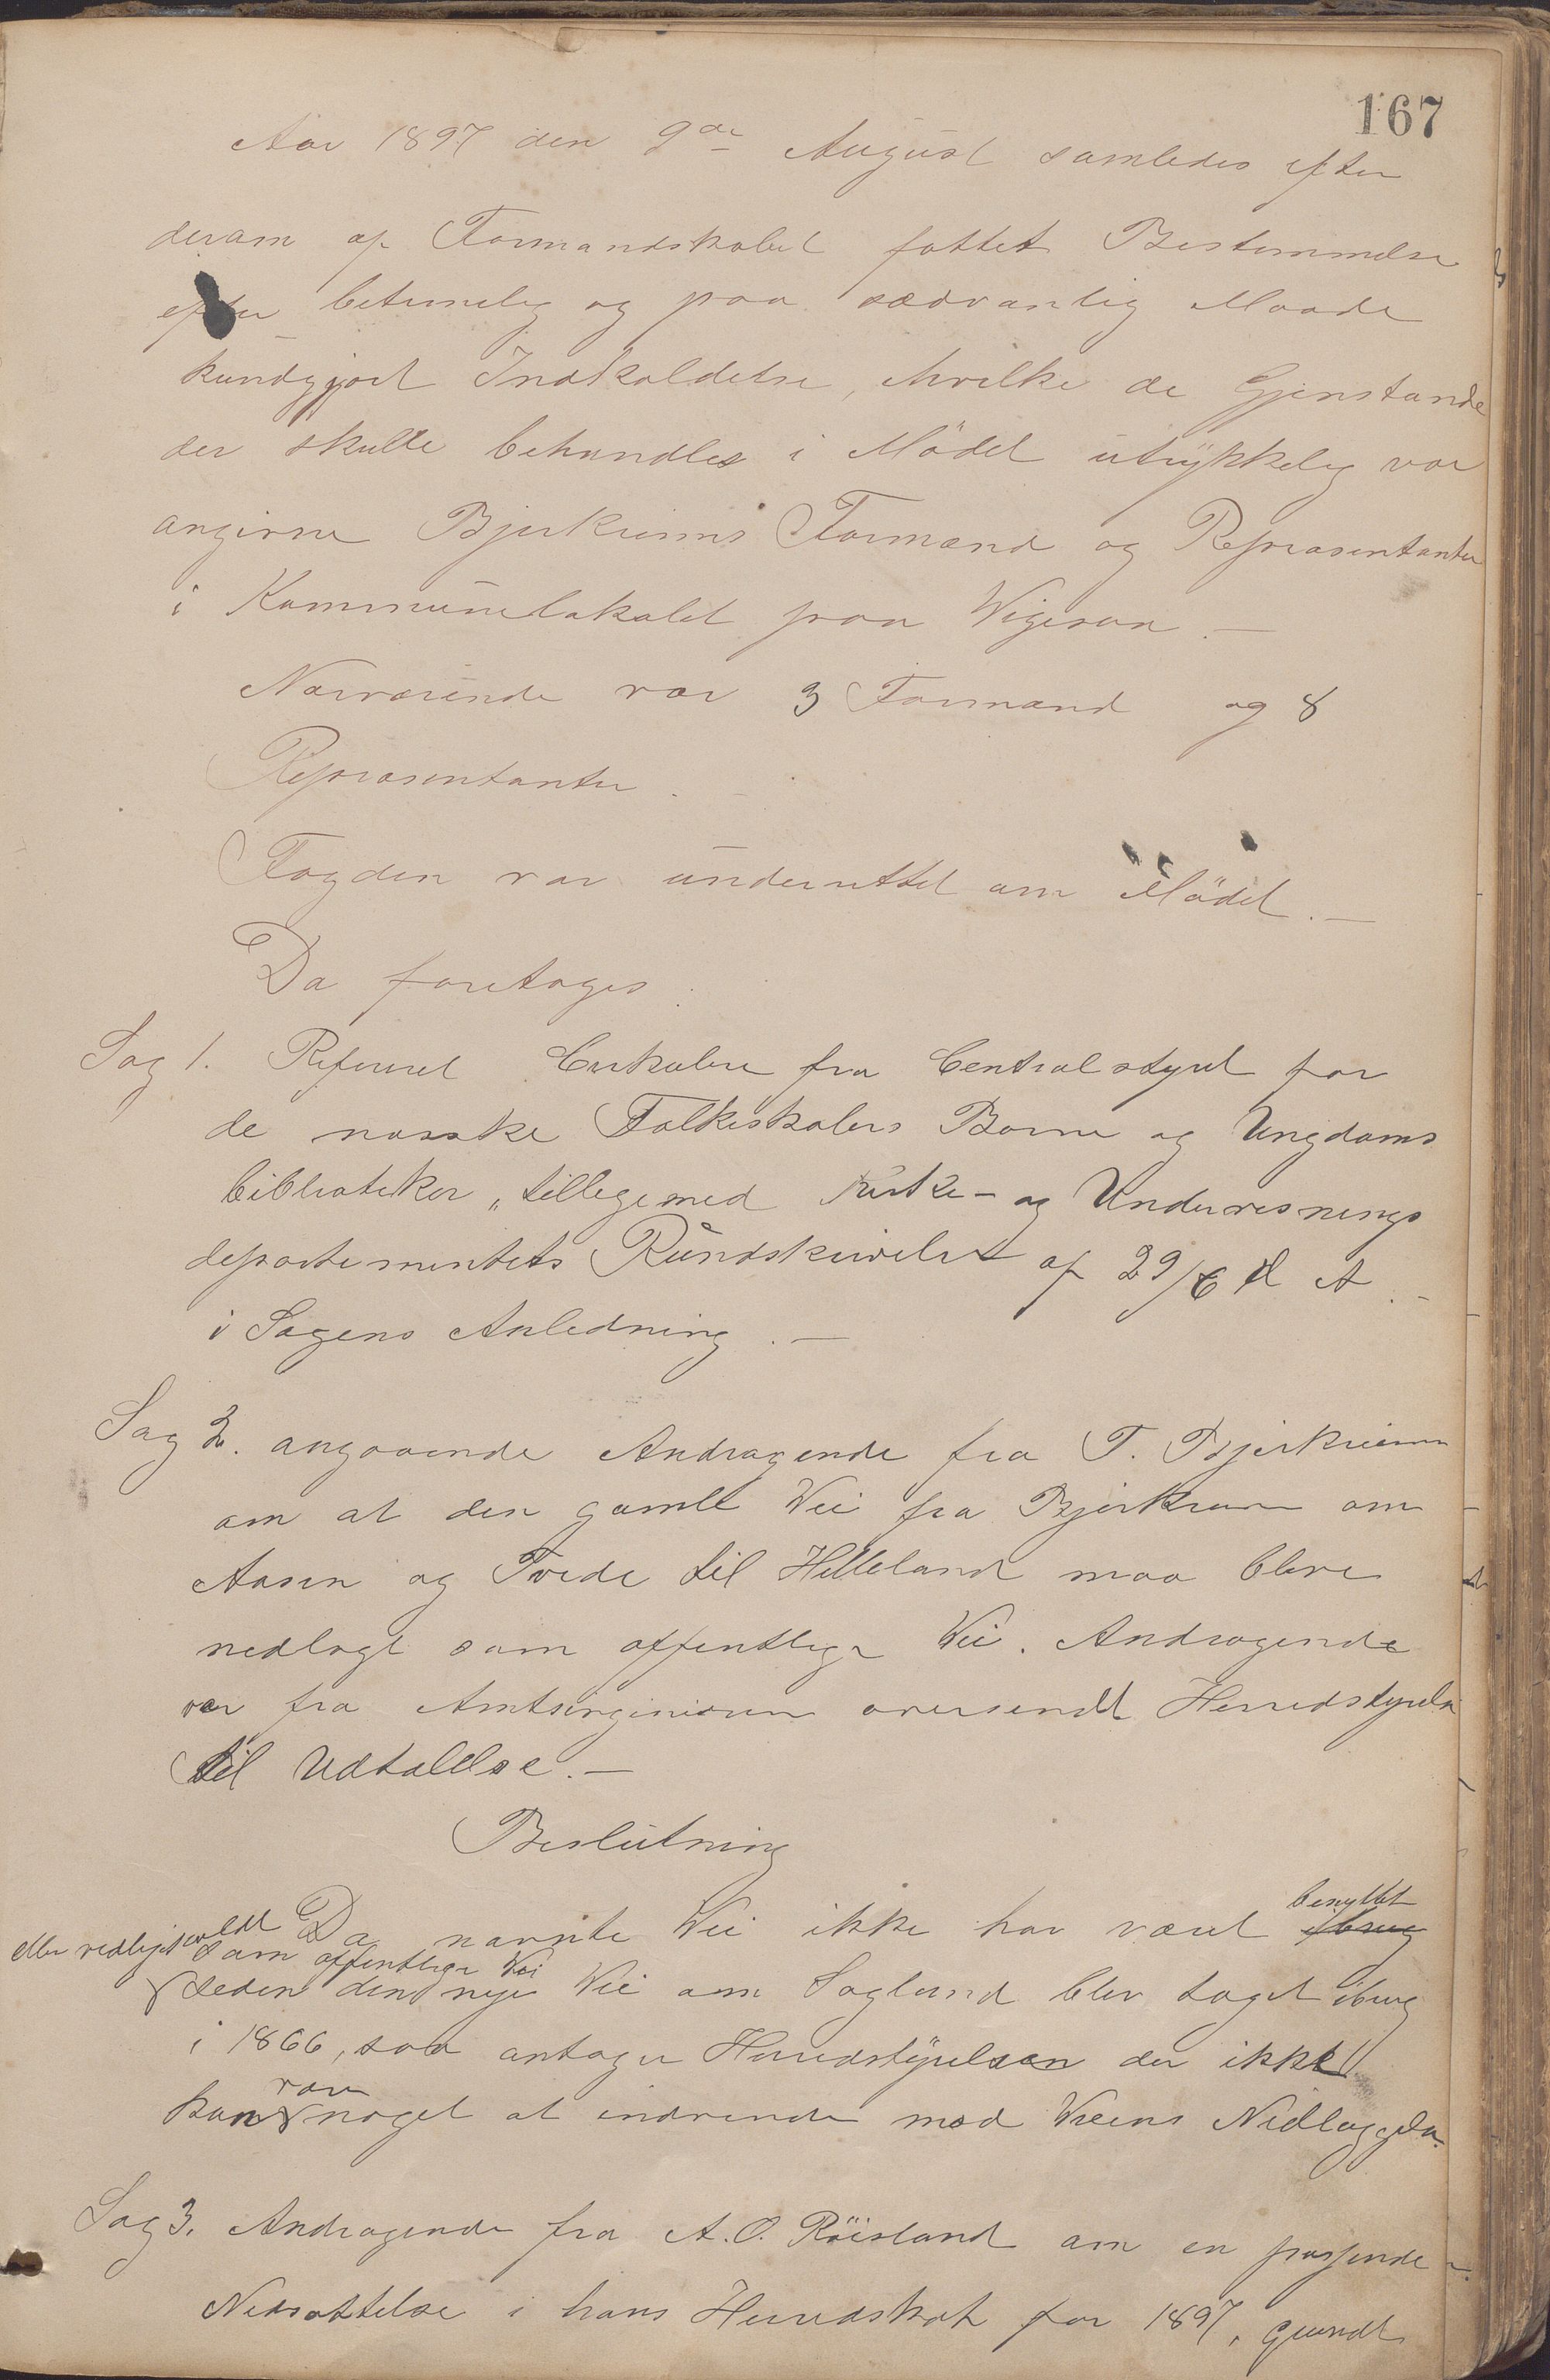 167
Aar 1897 den 9de August samledes efter
derom af Formandskabet fattet Bestemmelse
efter betimelig og paa sædvanlig Maade
kundgjort Indkaldelse, hvilke de Gjenstande
der skulle behandles i Mödet utrykkelig var
angivne Bjerkreims Formænd og Repræsentanter
i Kommunelokalet paa Vigesaa. —
Nærværende var 3 Formænd og 8
Repræsentanter. —
Fogden var underrettet om Mödet. —
Da foretoges.
Sag 1. Refereret Cirkulære fra Centralstyret for
de norske Folkeskolers Borne og Ungdoms
biblioteker „ tilligemed Kirke- og Undervisnings
departementets Rundskrivelse af 29/6 d A. -
i Sagens Anledning. —
Sag 2. angaaende Andragende fra T. Bjerkreim
om at den gamle Vei fra Bjerkreim om
Aasen og Tvede til Helleland maa blive
nedlagt som offentlige Vei. Andragende
var fra Amtsingeniøren oversendt Herredstyrelse
til Udtalelse. —
Beslutning
Da nævnte Vei ikke har været benyttet ibrug
eller vedligeholdt som offentlige Vei
seden den nye Vei om Sagland blev taget ibrug
i 1866, saa antager Herredstyrelsen der ikke
kan være noget at indvende mod Veiens Nedlæggelse.
Sag 3. Andragende fra A. O. Röisland om en passende
Nedsættelse i hans Herredskat for 1897, grundet